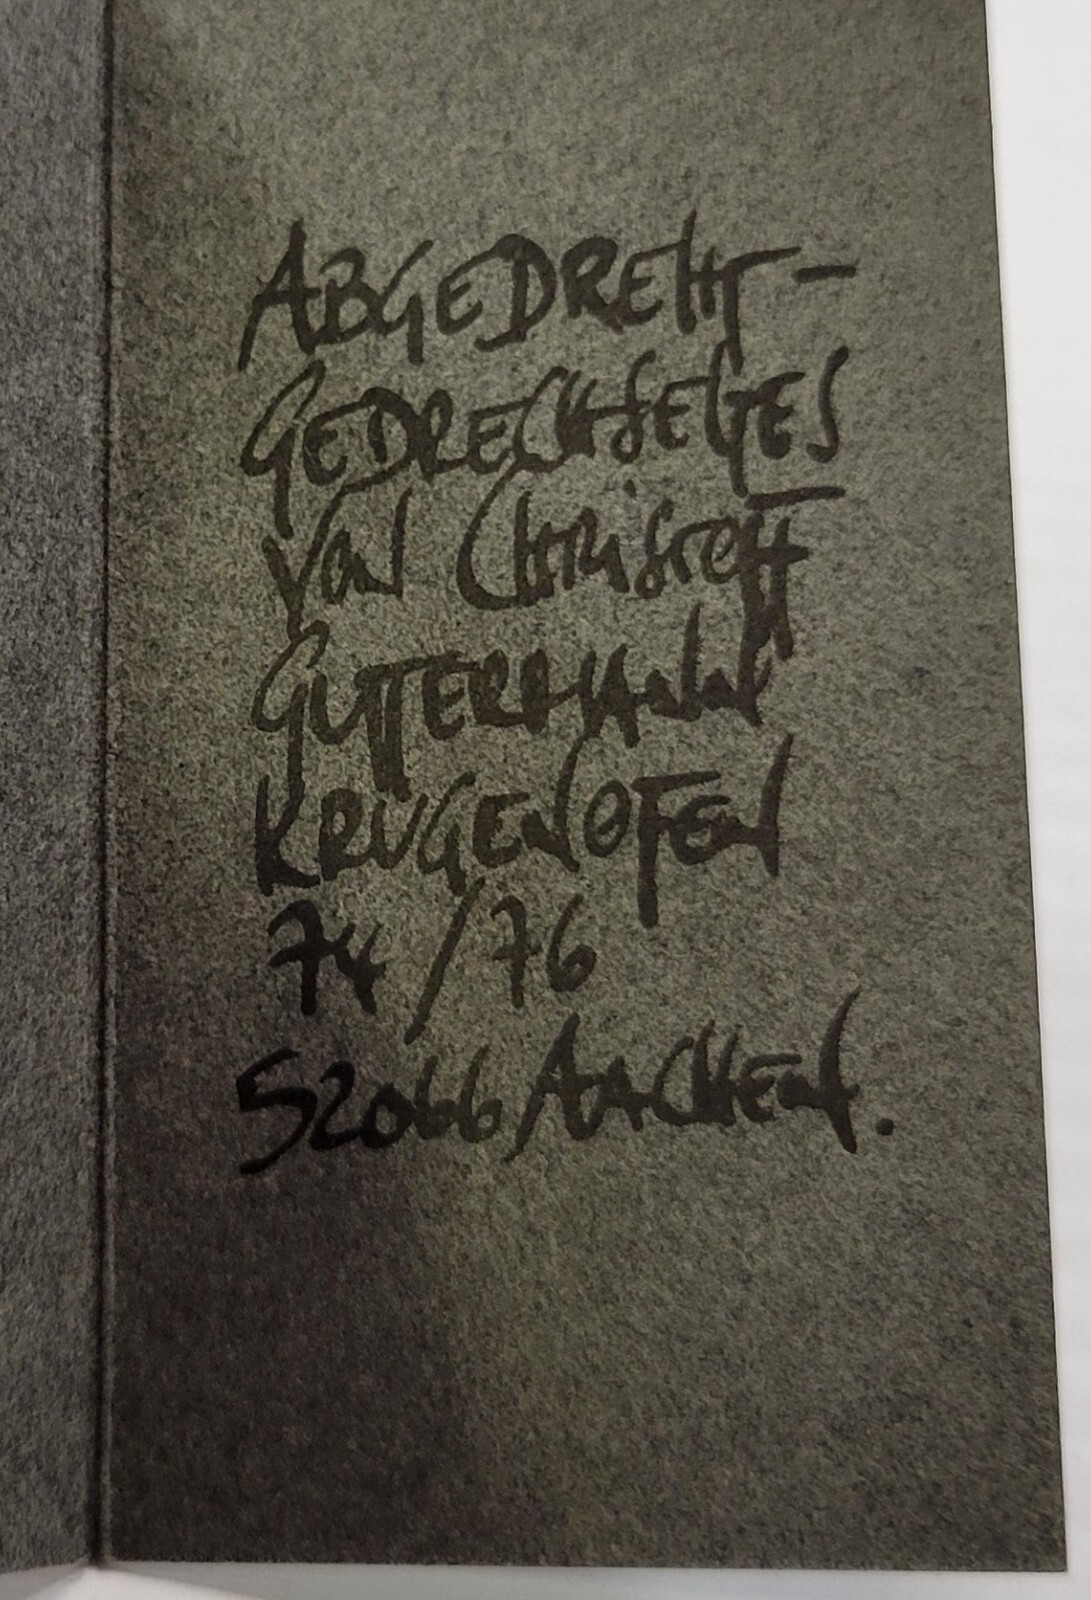 ABGEDREHT –
GEDRECHSELTES
VON CHRISTOPH
GUTTERMANN
KRUGENOFEN
74/76
52066 AACHEN.